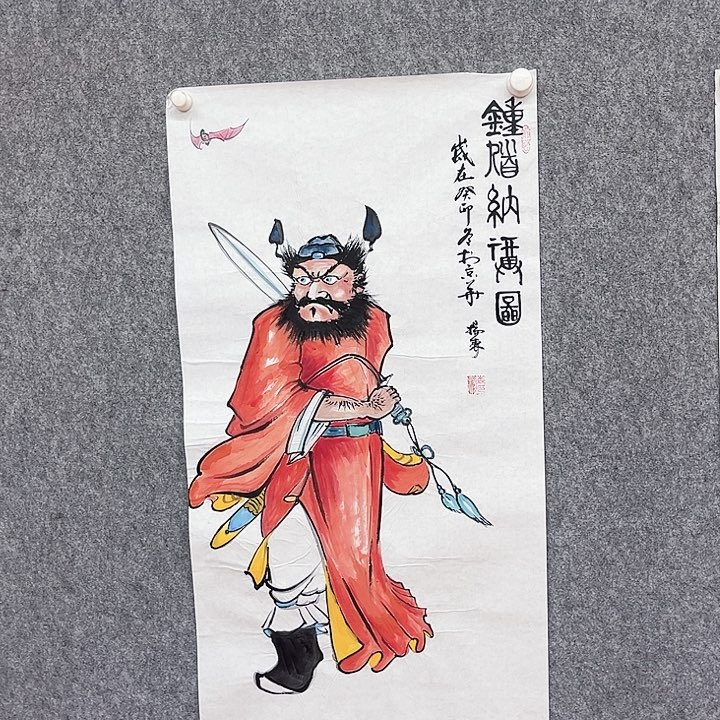 鍾馗納福圖
歲在癸卯冬於京華